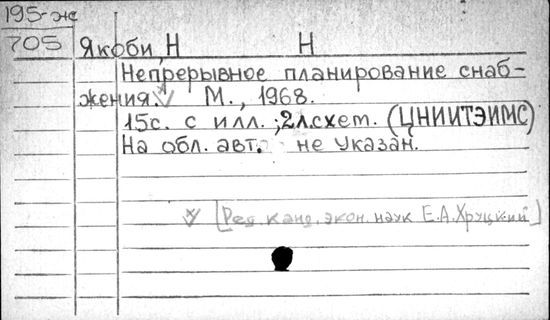 195-ж
705
Якоби, Н Н
Непрерывное планирование снаб-
жения. М., 1968.
15с. с илл.; 2лсхем. (ЦНИИТЭИМС)
На обл. авт. не указан.
[Ред. канд. экон. наук Е.А.Хруцкий]